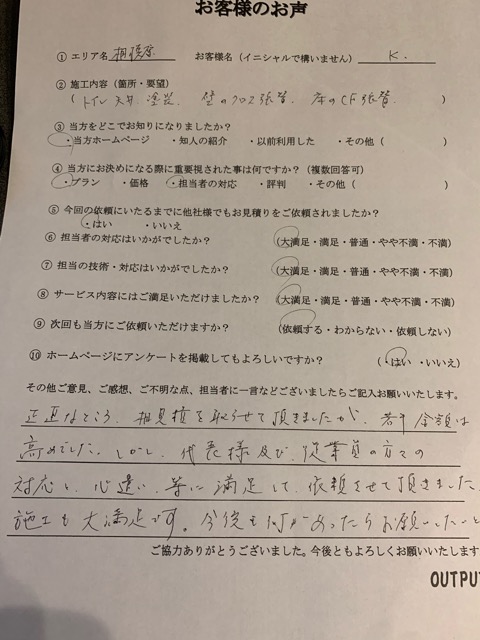 お客様のお声
① エリア名 相模原 お客様名（イニシャルで構いません） K.
② 施工内容（箇所・要望）
（トイレ天井塗装、壁のクロス張替、床のCF張替 ）
③ 当方をどこでお知りになりましたか？
・当方ホームページ ・知人の紹介 ・以前利用した ・その他（ ）
④ 当方にお決めになる際に重要視された事は何ですか？（複数回答可）
・プラン ・価格 ・担当者の対応 ・評判 ・その他（ ）
⑤ 今回の依頼にいたるまでに他社様でもお見積りをご依頼されましたか？
・はい ・いいえ
⑥ 担当者の対応はいかがでしたか？ （大満足・満足・普通・やや不満・不満）
⑦ 担当の技術・対応はいかがでしたか？ （大満足・満足・普通・やや不満・不満）
⑧ サービス内容にはご満足いただけましたか？ （大満足・満足・普通・やや不満・不満）
⑨ 次回も当方にご依頼いただけますか？ （依頼する・わからない・依頼しない）
⑩ ホームページにアンケートを掲載してもよろしいですか？ （・はい ・いいえ）
その他ご意見、ご感想、ご不明な点、担当者に一言などございましたらご記入お願いいたします。
正直なところ、相見積を取らせて頂きましたが、若干金額は
高めでした。しかし、代表様及び、従業員の方々の
対応と、心遣い、等に満足して、依頼させて頂きました
施工も大満足です。今後も何かあったらお願いしたいと
ご協力ありがとうございました。今後ともよろしくお願いいたします
OUTPU